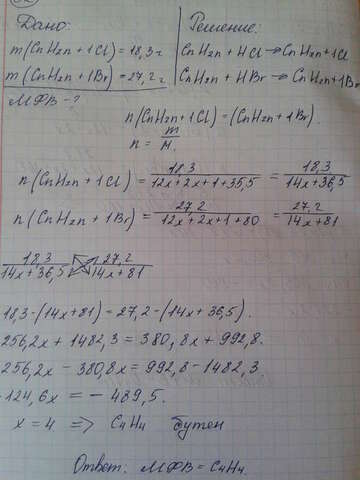 Дано:
Решение:
m(CnH2n+1Cl)=18,3г
CnH2n+HCl→CnH2n+1Cl
m(CnH2n+1Br)=27,2г
CnH2n+HBr→CnH2n+1Br
МФВ-?
n(CnH2n+1Cl)=(CnH2n+1Br).
n=m/M.
n(CnH2n+1Cl)=18,3/12x+2x+1+35,5=18,3/14x+36,5
n(CnH2n+1Br)=27,2/12x+2x+1+80=27,2/14x+81
18,3/14x+36,5 27,2/14x+81
18,3·(14x+81)=27,2·(14x+36,5).
256,2x+1482,3=380,8x+992,8.
256,2x-380,8x=992,8-1482,3.
-124,6x=-489,5.
x=4 => C4H4 бутен
Ответ: МФВ=C4H4.